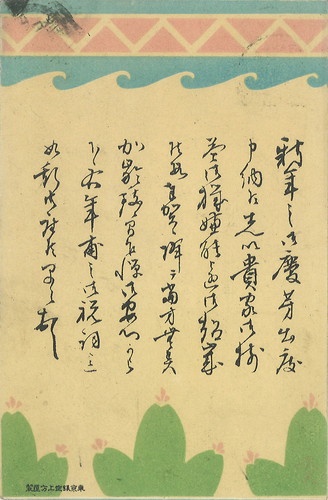 新年之御慶芽出度
申納候先以貴家御揃
益御機嫌能御超歳
奉賀候降而当方無異
加齢乍憚御安心可
下候右年甫之御祝詞迄
如斯御座候早々
東京銀座上方屋製